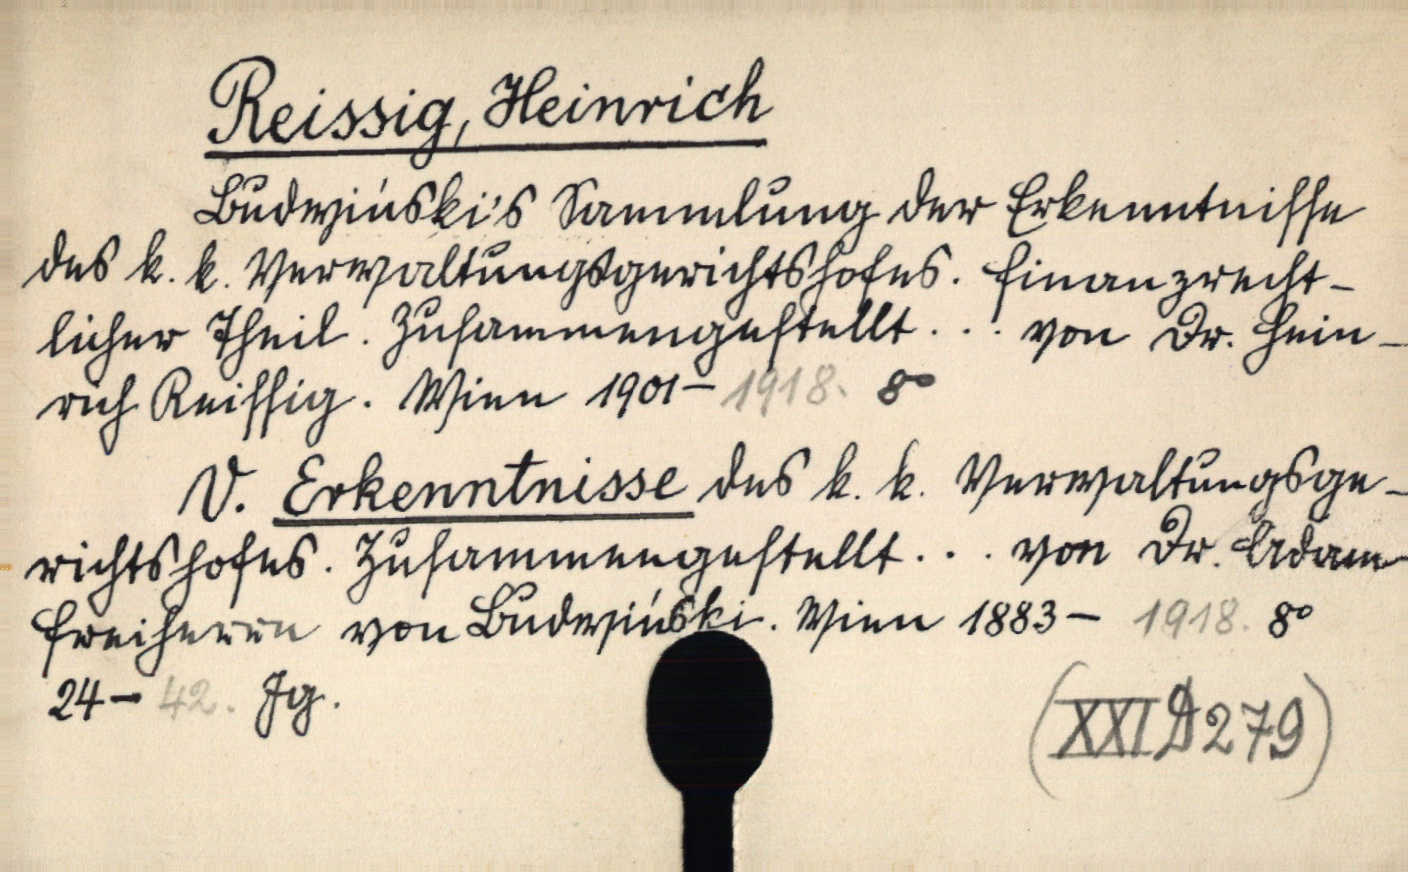 Reissig, Heinrich
Budwiński's Sammlung der Erkenntnisse
des k. k. Verwaltungsgerichtshofes. Finanzrecht-
licher Theil. Zusammengestellt... von Dr. Hein-
rich Reissig. Wien 1901- 1918. 8°
V. Erkenntnisse des k. k. Verwaltungsge-
richtshofes. Zusammengestellt... von Dr. Adam
Freiherrn von Budwiński. Wien 1883- 1918. 8°
24- 42. Jg.
(XXI D 279)